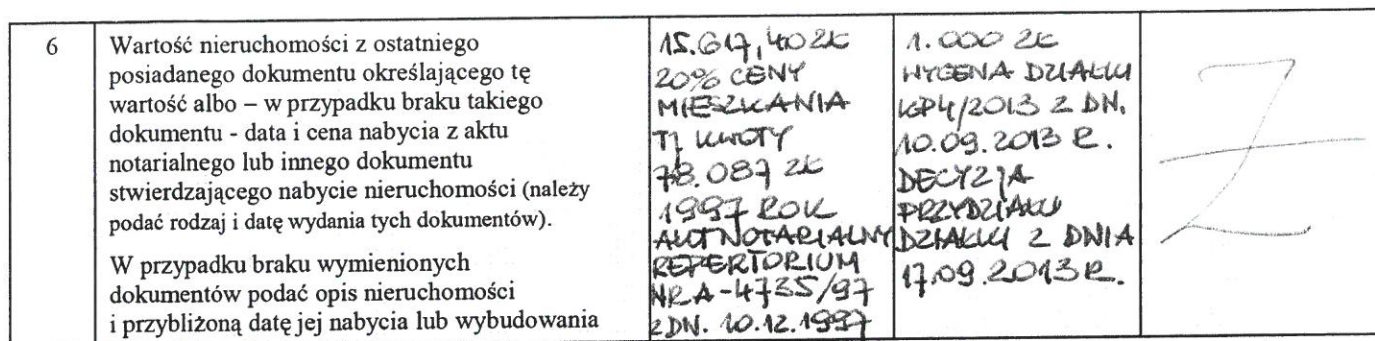 6
Wartość nieruchomości z ostatniego
posiadanego dokumentu określającego tę
wartość albo – w przypadku braku takiego
dokumentu - data i cena nabycia z aktu
notarialnego lub innego dokumentu
stwierdzającego nabycie nieruchomości (należy
podać rodzaj i datę wydania tych dokumentów).
W przypadku braku wymienionych
dokumentów podać opis nieruchomości
i przybliżoną datę jej nabycia lub wybudowania
15.617,40 ZŁ
20% CENY
MIESZKANIA
TJ KWOTY
78.087 ZŁ
1997 ROK
AKT NOTARIALNY
REPERTORIUM
NR A-4735/97
Z DN. 10.12.1997
1.000 ZŁ
WYCENA DZIAŁKI
KP4/2013 Z DN.
10.09.2013 R.
DECYZJA
PRZYDZIAŁU
DZIAŁKI Z DNIA
17.09.2013 R.